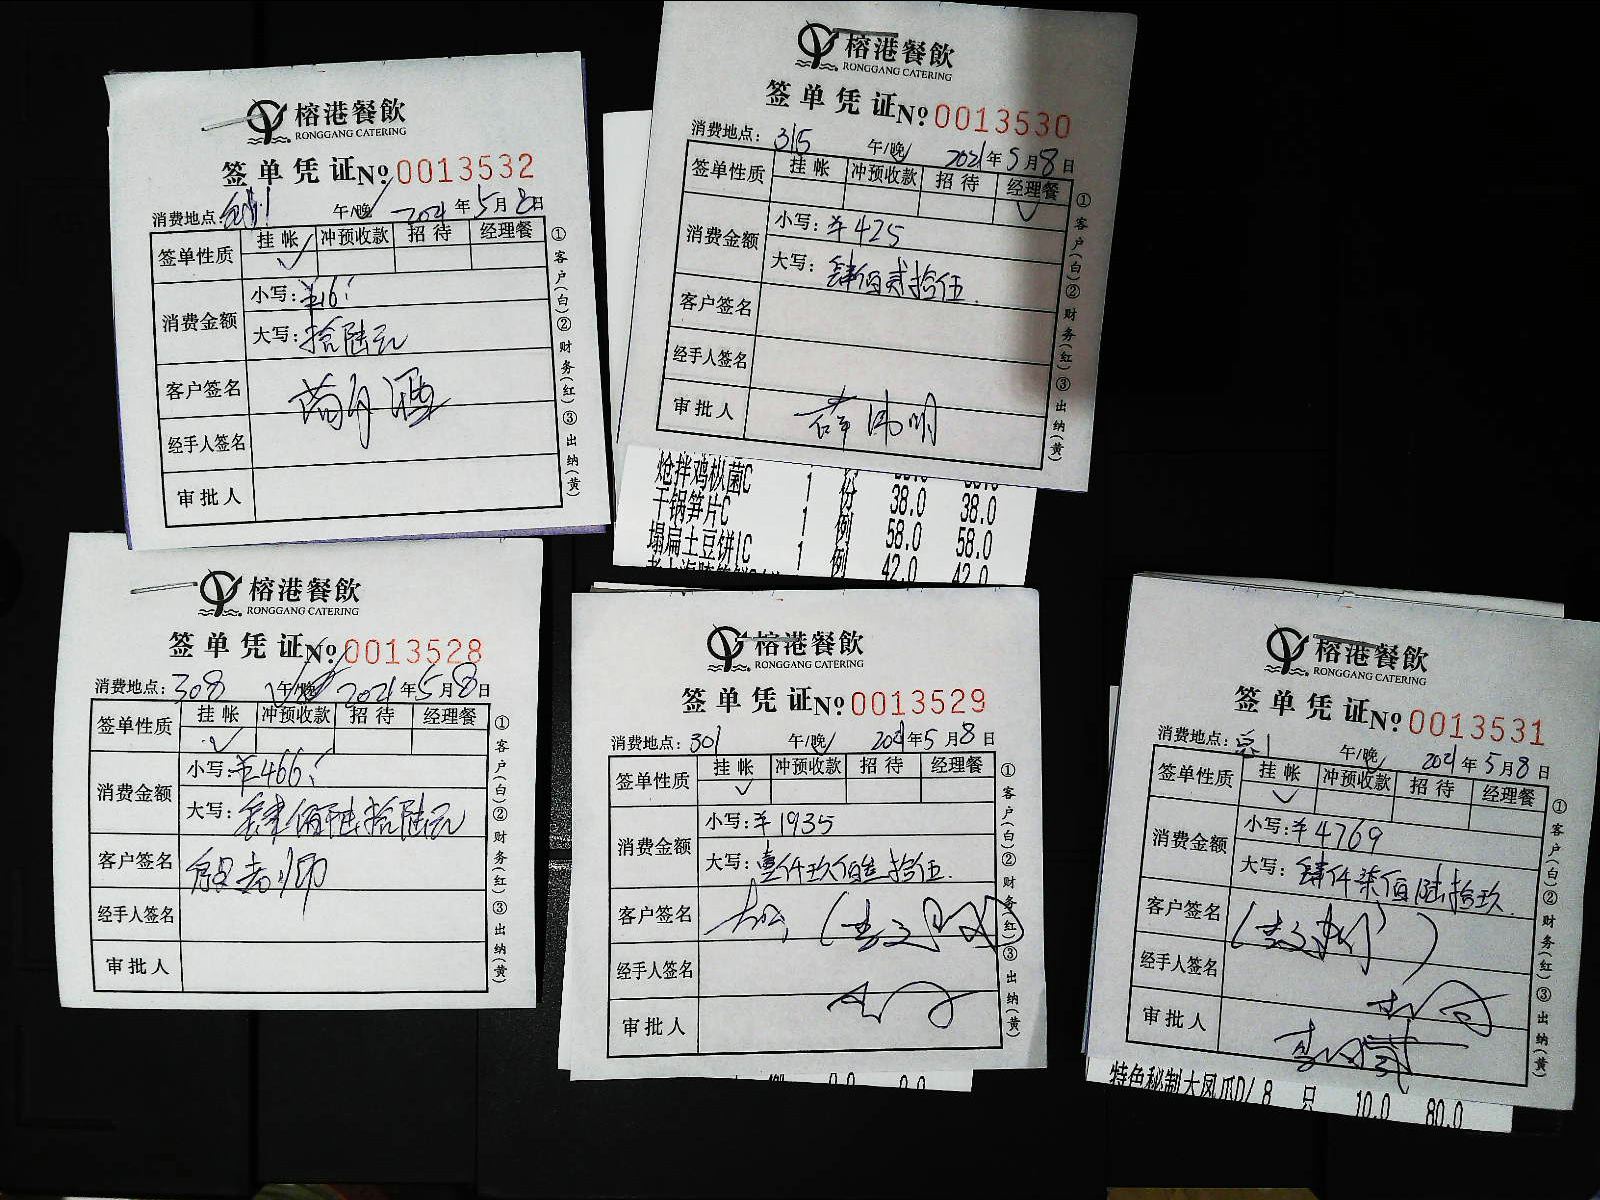 榕港餐飲
RONGGANG CATERING
签单凭证 No 0013532
消费地点:
午/晚 2021年5月8日
签单性质 挂帐 冲预收款 招待 经理餐
消费金额
小写:¥16
大写:拾陆元
客户签名
经手人签名
审批人
①客户(白)②财务(红)③出纳(黄)
榕港餐飲
RONGGANG CATERING
签单凭证 No 0013530
消费地点:315 午/晚 2021年5月8日
签单性质 挂帐 冲预收款 招待 经理餐
消费金额
小写:¥425
大写:肆佰贰拾伍
客户签名
经手人签名
审批人 薛伟明
①客户(白)②财务(红)③出纳(黄)
炝拌鸡枞菌C 1 份 38.0 38.0
干锅笋片C 1 例 58.0 58.0
塌扁土豆饼IC 1 例 42.0 42.0
榕港餐飲
RONGGANG CATERING
签单凭证 No 0013528
消费地点:308 午/晚 2021年5月8日
签单性质 挂帐 冲预收款 招待 经理餐
消费金额
小写:¥466
大写:肆佰陆拾陆元
客户签名 殷老师
经手人签名
审批人
①客户(白)②财务(红)③出纳(黄)
榕港餐飲
RONGGANG CATERING
签单凭证 No 0013529
消费地点:301 午/晚 2021年5月8日
签单性质 挂帐 冲预收款 招待 经理餐
消费金额
小写:¥1935
大写:壹仟玖佰叁拾伍
客户签名
经手人签名
审批人
①客户(白)②财务(红)③出纳(黄)
榕港餐飲
RONGGANG CATERING
签单凭证 No 0013531
消费地点:总1 午/晚 2021年5月8日
签单性质 挂帐 冲预收款 招待 经理餐
消费金额
小写:¥4769
大写:肆仟柒佰陆拾玖
客户签名
经手人签名
审批人
①客户(白)②财务(红)③出纳(黄)
特色秘制大凤爪D/ 8 只 10.0 80.0